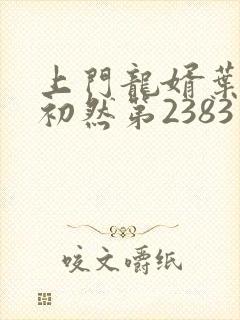 上門龍婿葉
初然第2383
咬文嚼纸